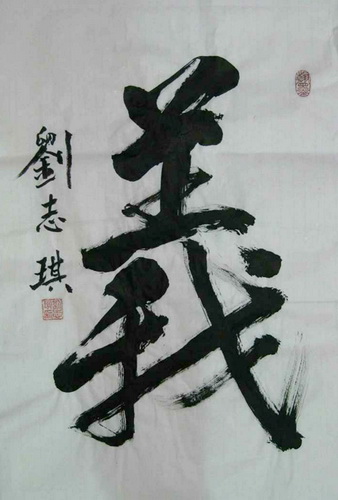 義
劉志琪